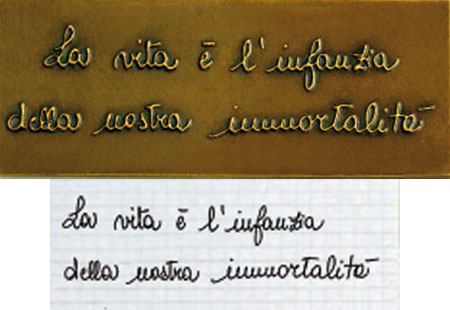 La vita è l'infanzia
della nostra immortalità
La vita è l'infanzia
della nostra immortalità